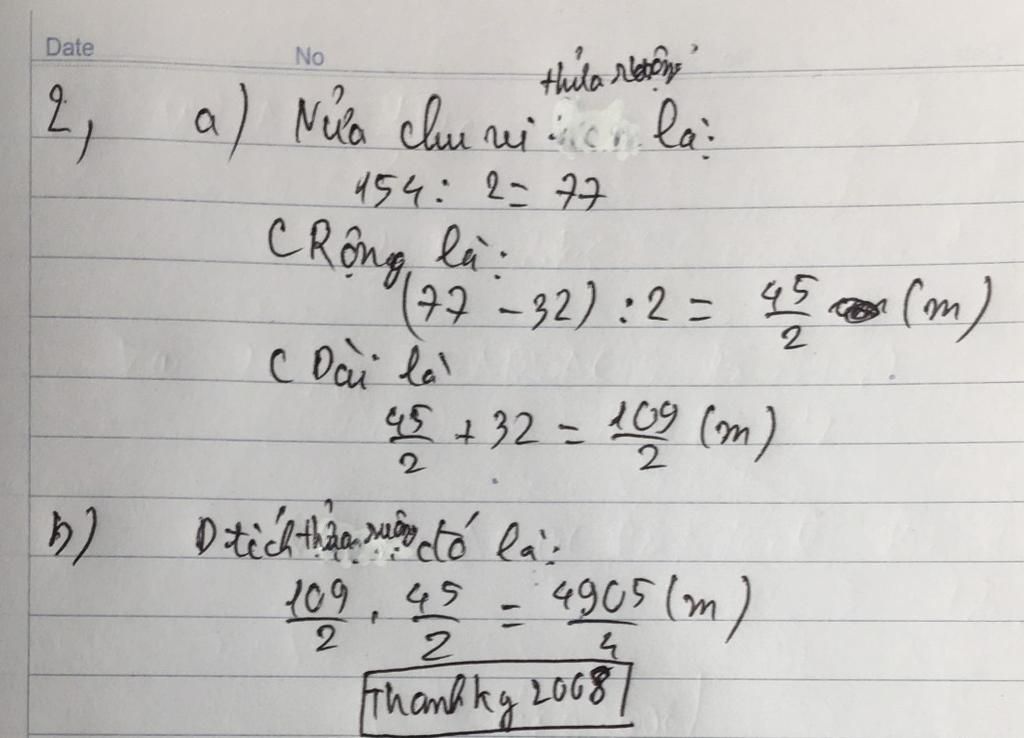 Date No
thửa ruộng
2, a) Nửa chu vi là:
154 : 2 = 77
C Rộng là:
(77 - 32) : 2 = 45/2 (m)
C Dài là
45/2 + 32 = 109/2 (m)
b) D tích thửa ruộng đó là:
109/2 . 45/2 = 4905/4 (m)
Thanhkg 2008